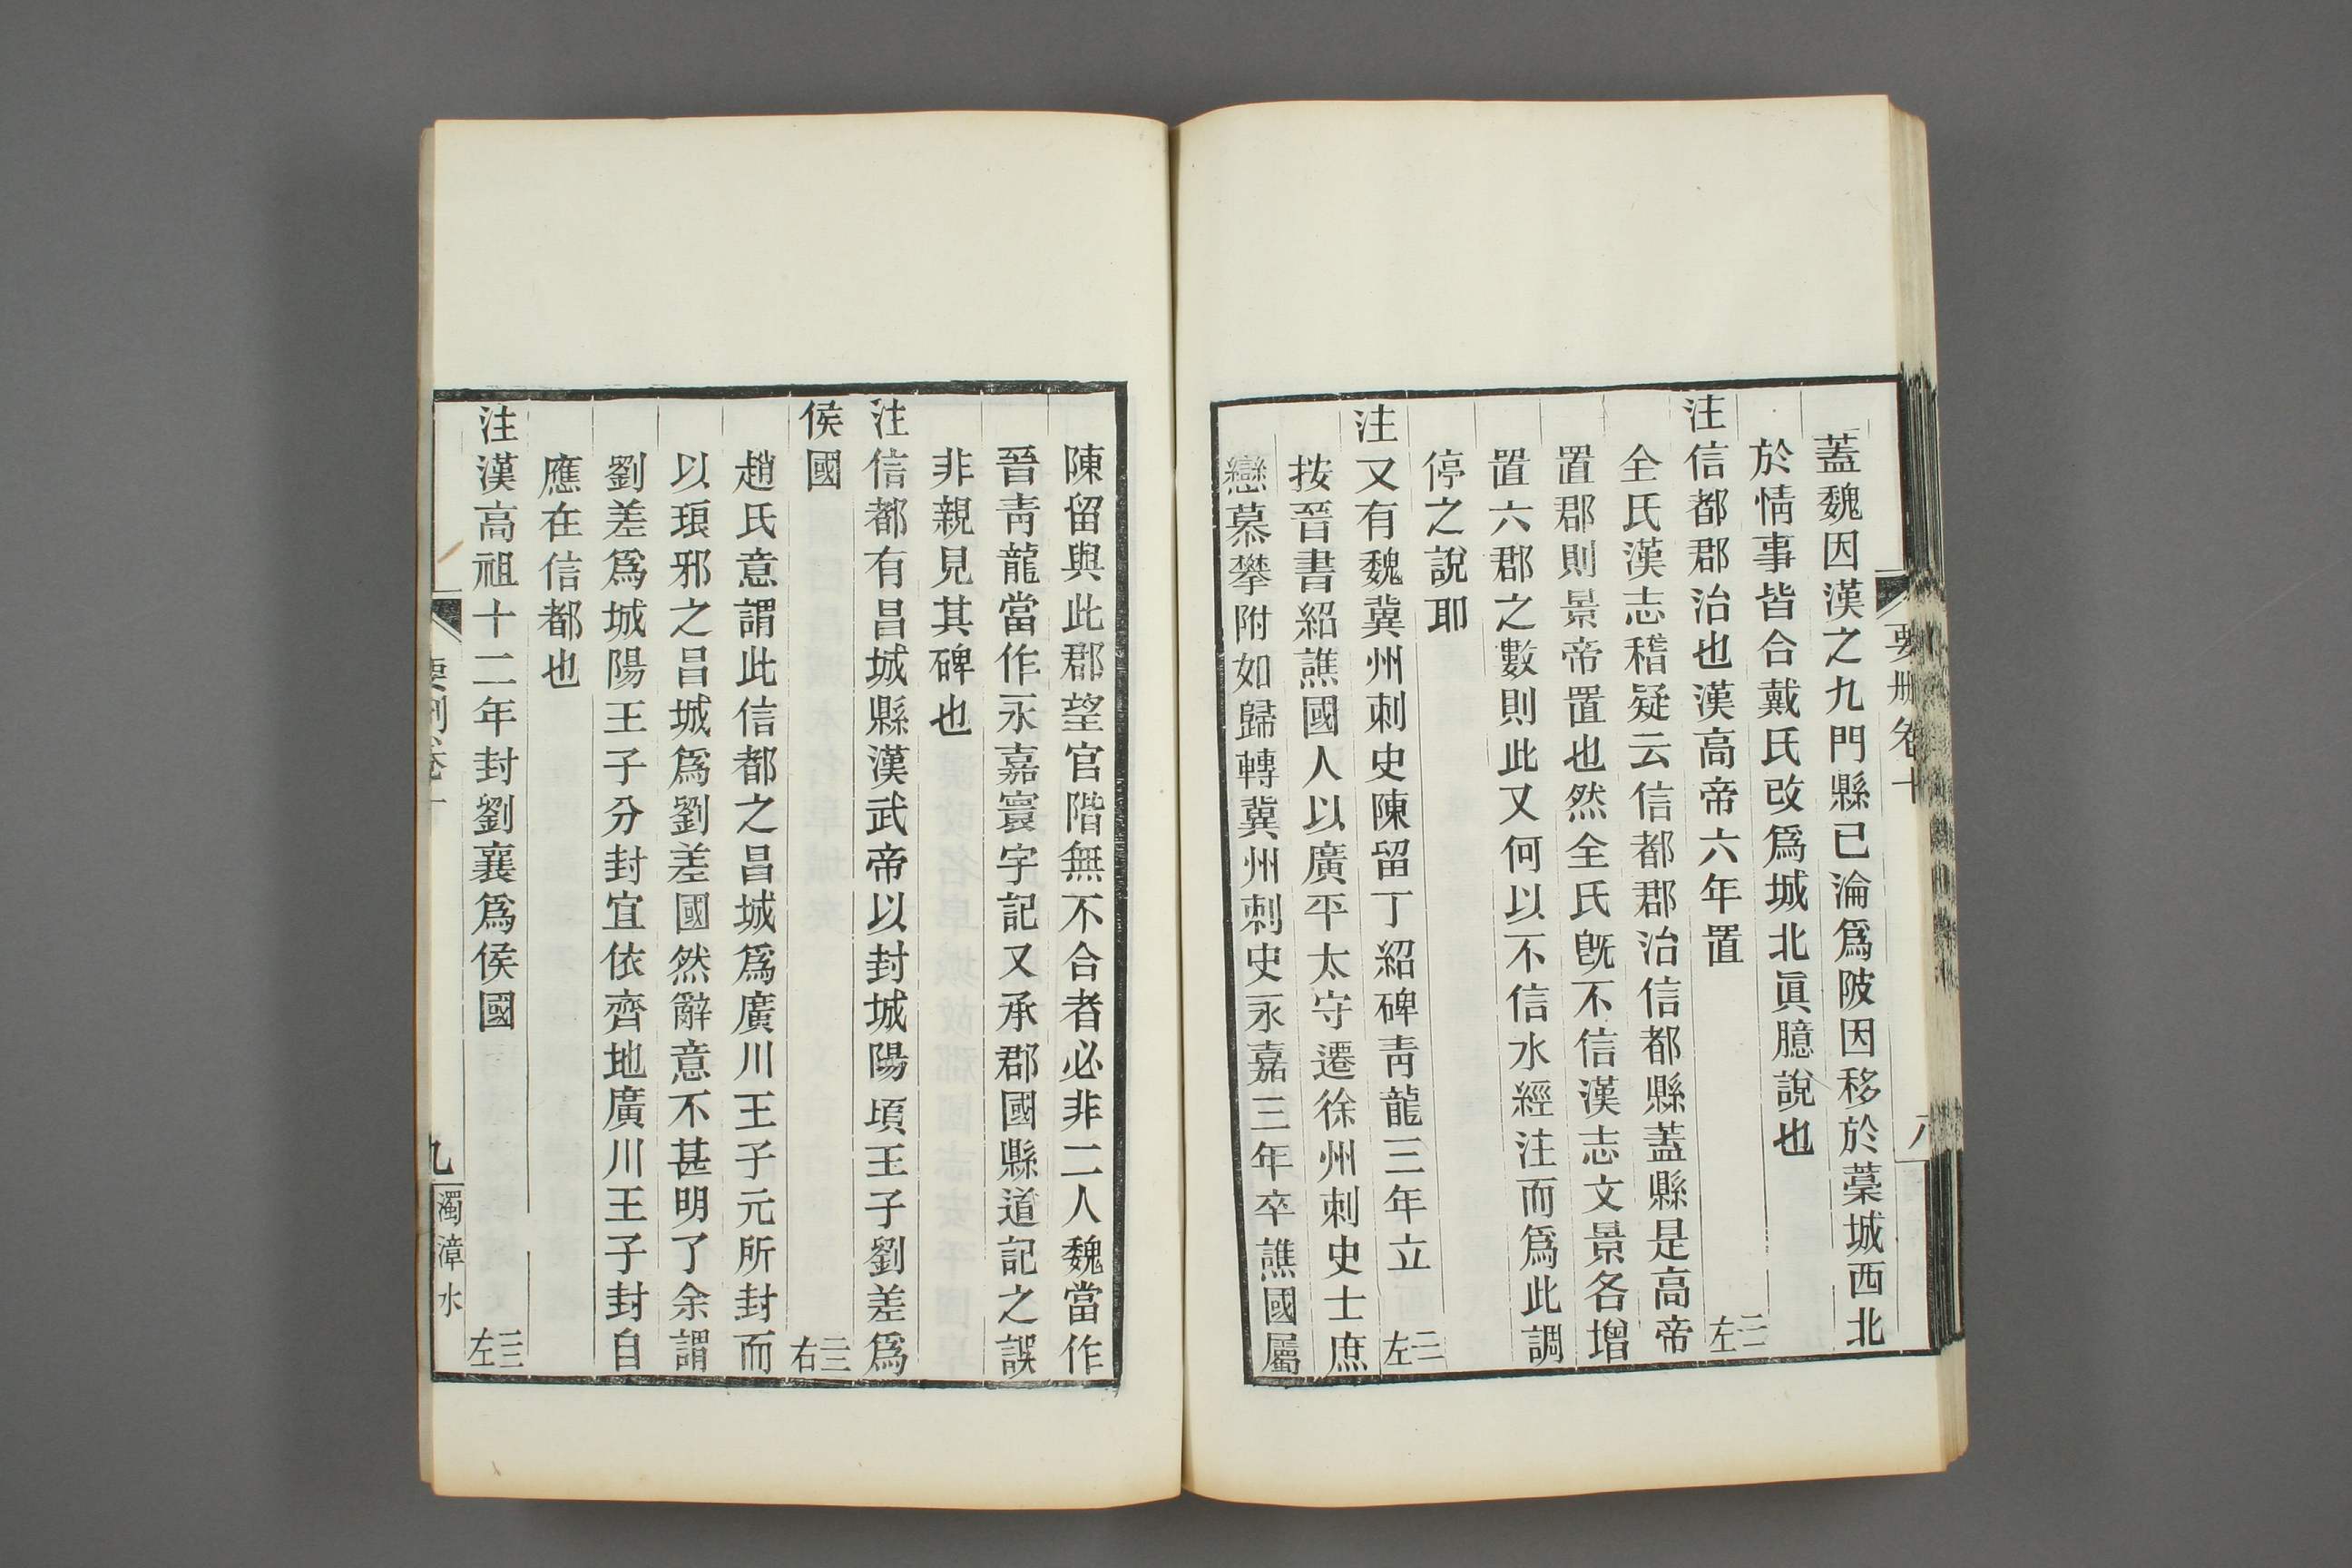 要刪卷十
八
蓋魏因漢之九門縣已淪爲陂因移於藁城西北
於情事皆合戴氏改爲城北眞臆說也
注信都郡治也漢高帝六年置 三二左
全氏漢志稽疑云信都郡治信都縣蓋縣是高帝
置郡則景帝置也然全氏旣不信漢志文景各增
置六郡之數則此又何以不信水經注而爲此調
停之說耶
注又有魏冀州刺史陳留丁紹碑靑龍三年立 三二左
按晉書紹譙國人以廣平太守遷徐州刺史士庶
戀慕攀附如歸轉冀州刺史永嘉三年卒譙國屬
陳留與此郡望官階無不合者必非二人魏當作
晉靑龍當作永嘉寰宇記又承郡國縣道記之誤
非親見其碑也
注信都有昌城縣漢武帝以封城陽頃王子劉差爲
侯國 三三右
趙氏意謂此信都之昌城爲廣川王子元所封而
以琅邪之昌城爲劉差國然辭意不甚明了余謂
劉差爲城陽王子分封宜依齊地廣川王子封自
應在信都也
注漢高祖十二年封劉襄爲侯國 三三左
要刪卷十
九
濁漳水